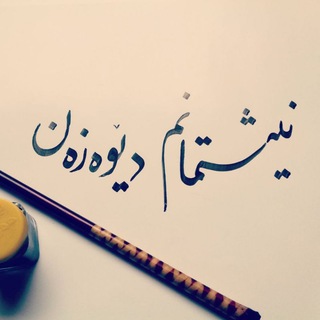 نیشتمانم دێوەزەن